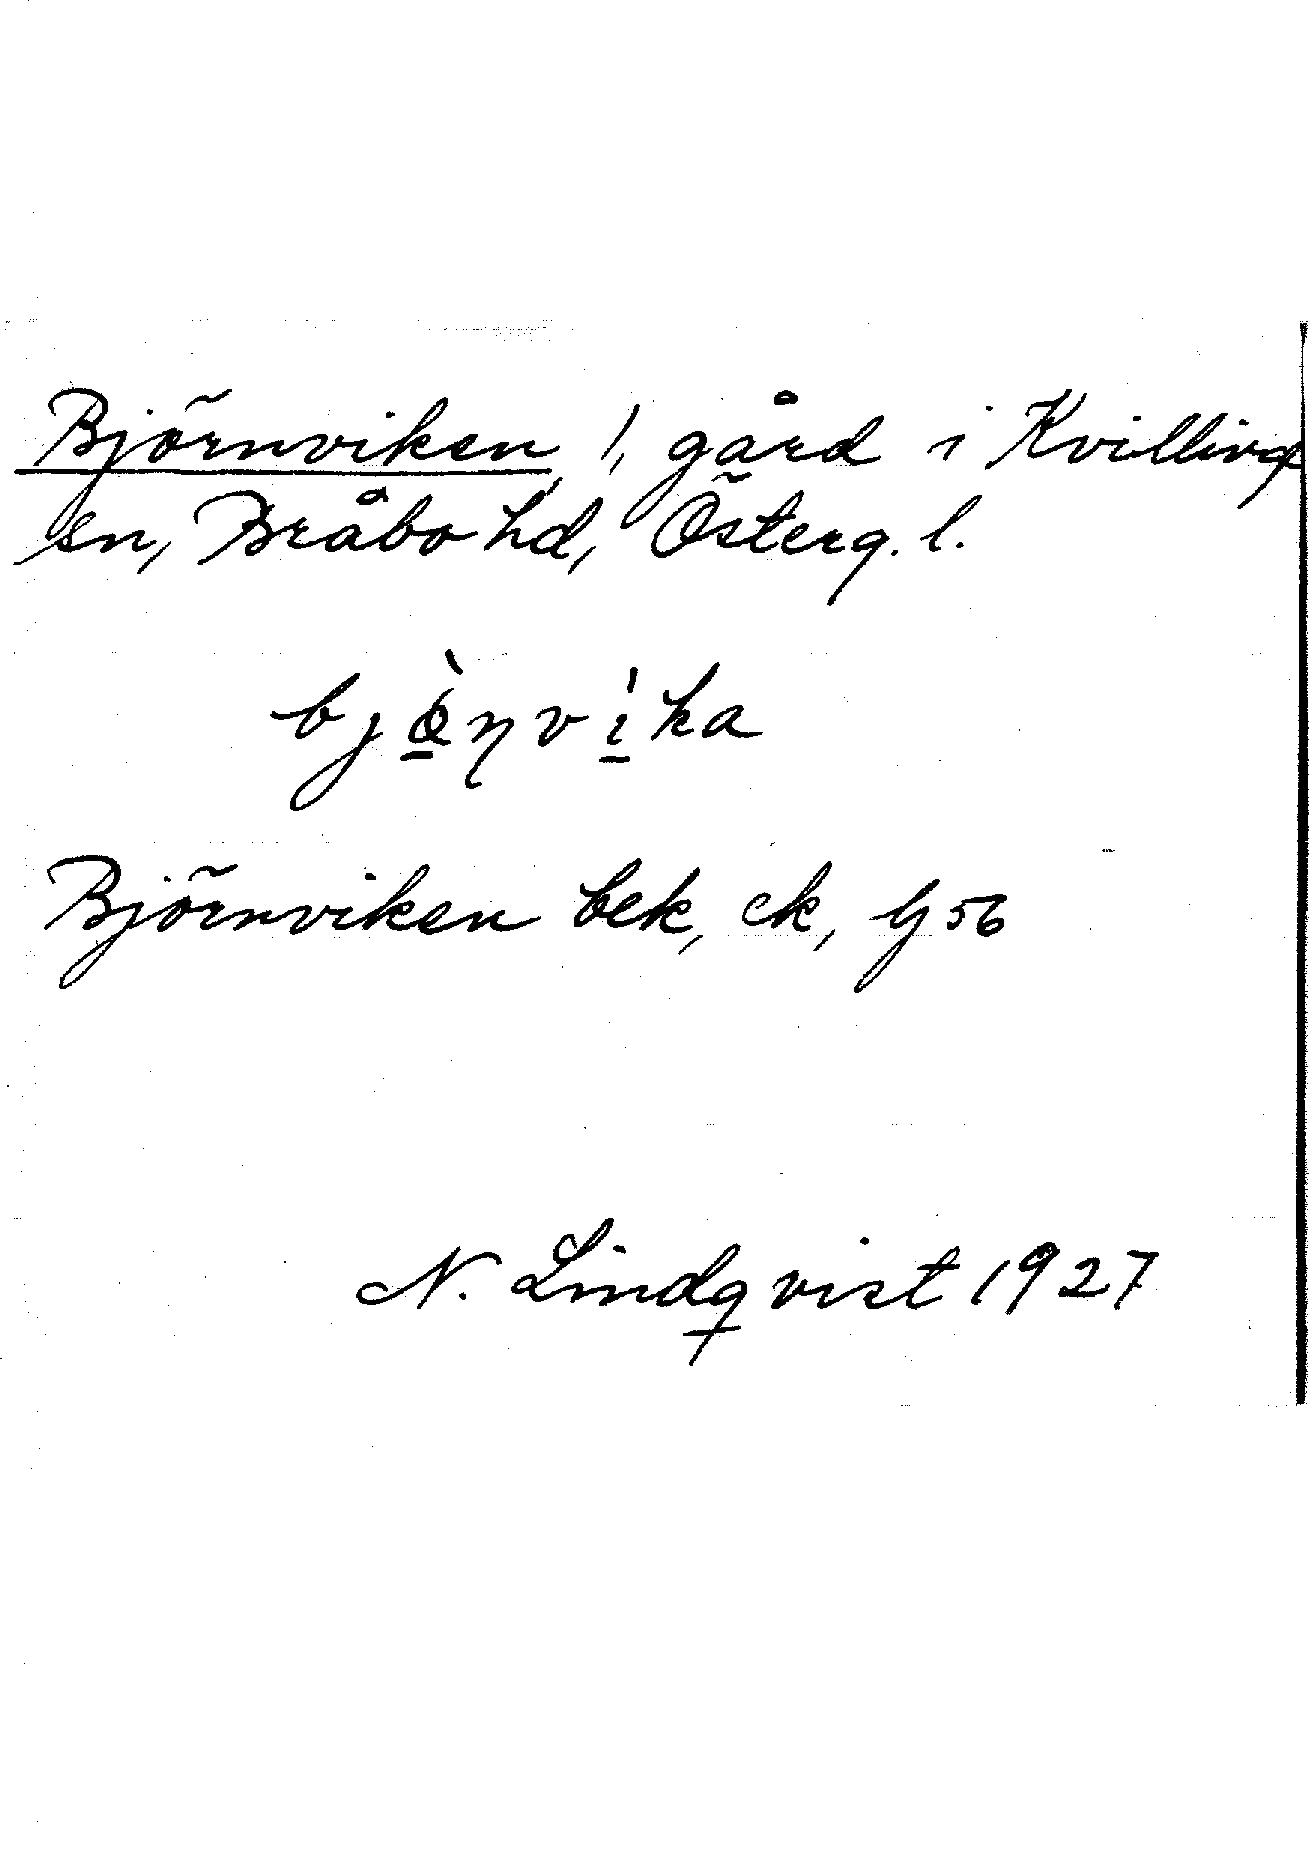 Björnviken, 1, gård i Kvilling
en, Bråbo hd, Österg. l.
bjö̀ɳvíka
Björnviken bek, ek, Gj 56
N. Lindqvist 1927